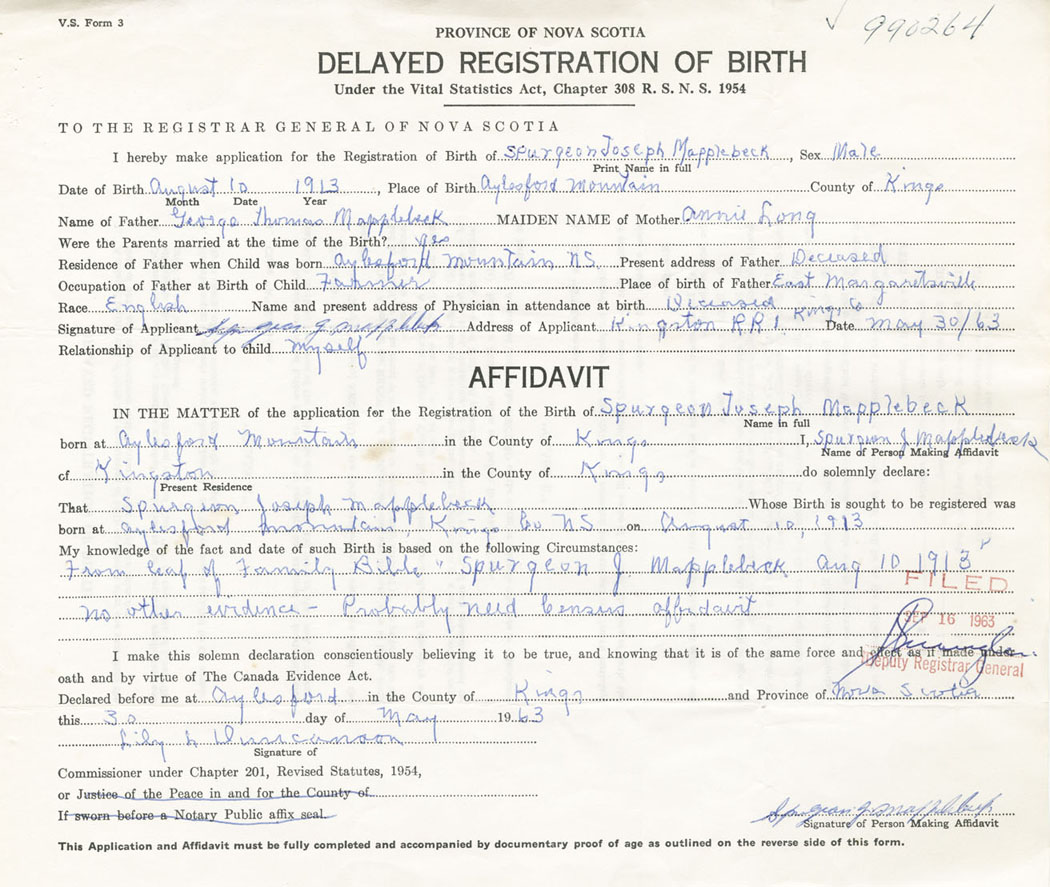 V.S. Form 3
990264
PROVINCE OF NOVA SCOTIA
DELAYED REGISTRATION OF BIRTH
Under the Vital Statistics Act, Chapter 308 R. S. N. S. 1954
TO THE REGISTRAR GENERAL OF NOVA SCOTIA
I hereby make application for the Registration of Birth of Spurgeon Joseph Mapplebeck, Sex Male
Print Name in full
Date of Birth August 10 1913, Place of Birth Aylesford Mountain County of Kings
Month Date Year
Name of Father George Thomas Mapplebeck MAIDEN NAME of Mother Annie Long
Were the Parents married at the time of the Birth? yes
Residence of Father when Child was born Aylesford Mountain NS. Present address of Father Deceased
Occupation of Father at Birth of Child Farmer Place of birth of Father East Margaretsville
Race English Name and present address of Physician in attendance at birth Deceased Kings Co
Signature of Applicant Spurgeon J Mapplebeck Address of Applicant Kingston RR1 Date May 30/63
Relationship of Applicant to child myself
AFFIDAVIT
IN THE MATTER of the application for the Registration of the Birth of Spurgeon Joseph Mapplebeck
Name in full
born at Aylesford Mountain in the County of Kings I, Spurgeon J Mapplebeck
Name of Person Making Affidavit
of Kingston in the County of Kings do solemnly declare:
Present Residence
That Spurgeon Joseph Mapplebeck Whose Birth is sought to be registered was
born at Aylesford Mountain, Kings Co NS on August 10, 1913
My knowledge of the fact and date of such Birth is based on the following Circumstances:
From leaf of Family Bible "Spurgeon J Mapplebeck Aug 10 1913"
FILED
no other evidence - Probably need Census affidavit
SEP 16 1963
I make this solemn declaration conscientiously believing it to be true, and knowing that it is of the same force and effect as if made under
Deputy Registrar General
oath and by virtue of The Canada Evidence Act.
Declared before me at Aylesford in the County of Kings and Province of Nova Scotia
this 30 day of May 1963
Lily L Duncanson
Signature of
Commissioner under Chapter 201, Revised Statutes, 1954,
or Justice of the Peace in and for the County of
If sworn before a Notary Public affix seal.
Spurgeon J Mapplebeck
Signature of Person Making Affidavit
This Application and Affidavit must be fully completed and accompanied by documentary proof of age as outlined on the reverse side of this form.